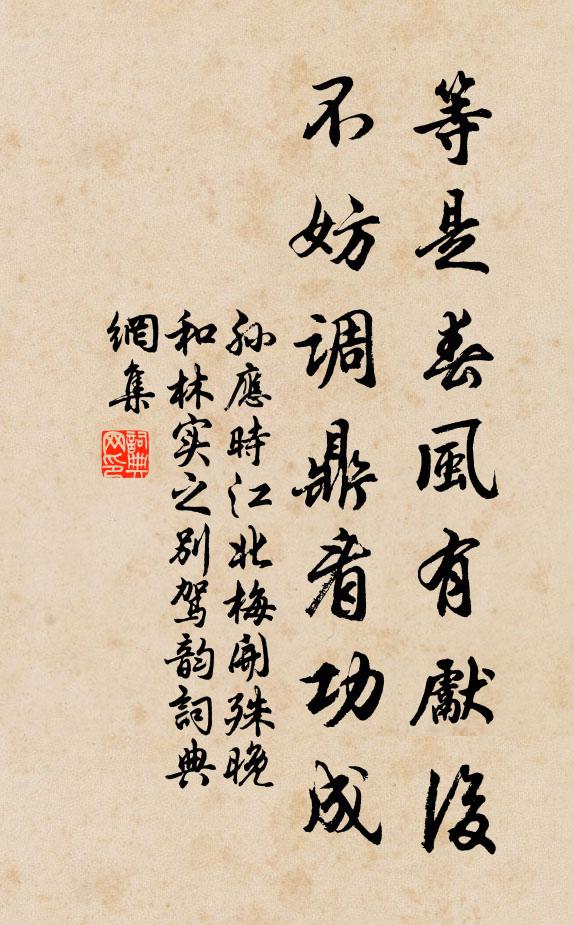 等是春風有獻後
不妨調鼎看功成
孫應時江北梅開殊晚
和林实之别駕韵詞典
網集
詞典
网印